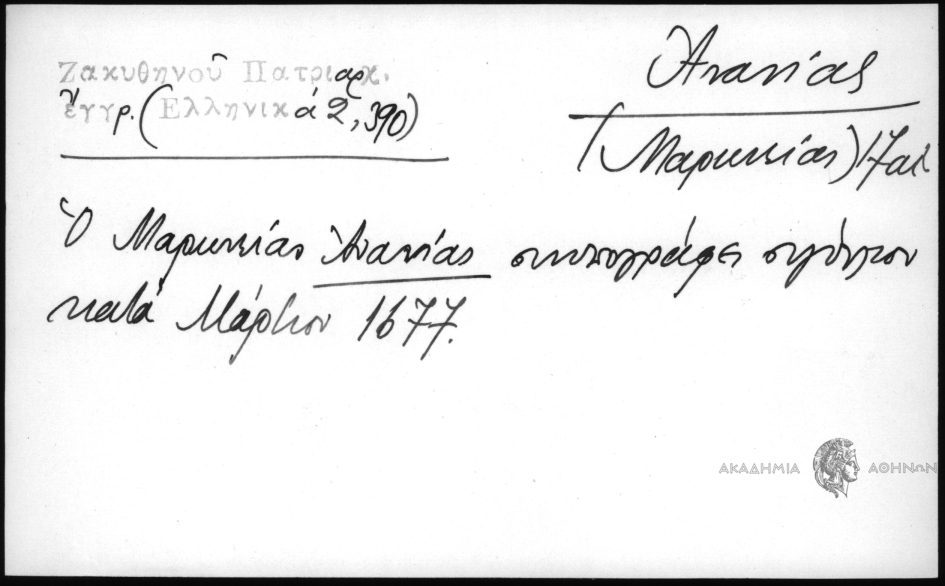 Ζακυθηνοῦ Πατριαρχ.
ἔγγρ. (Ἑλληνικά 2, 390)
Ἀνανίας
(Μαρωνείας) 17 αἰ
Ὁ Μαρωνείας Ἀνανίας συνυπογράφει
κατά Μάρτιον 1677.
ΑΚΑΔΗΜΙΑ ΑΘΗΝΩΝ